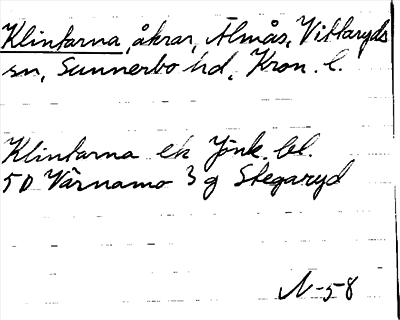 Klintarna, åkrar, Älmås, Vittaryds
sn, Sunnerbo hd, Kron. l.
Klintarna ek Jönk. bl.
50 Värnamo 3 g Stegaryd
N-58